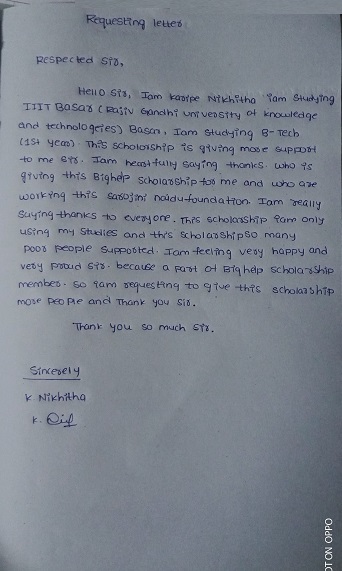 Requesting letter
Respected Sir,
Hello Sir, Iam Karipe Nikhitha iam Studying
IIIT Basar (Rajiv Gandhi university of knowledge
and technologeies) Basar, Iam Studying B-Tech
(1st year). This scholarship is giving more support
to me sir. Iam heartfully saying thanks. who is
giving this Bighelp scholarship for me and who are
working this sarojini naidu-foundation. Iam really
saying thanks to everyone. This scholarship iam only
using my studies and this scholarship so many
poor people supported. Iam feeling very happy and
very proud sir. because a part of Bighelp scholarship
member. so iam requesting to give this scholarship
more people and Thank you sir.
Thank you so much sir.
Sincerely
K. Nikhitha
K.
OT ON OPPO